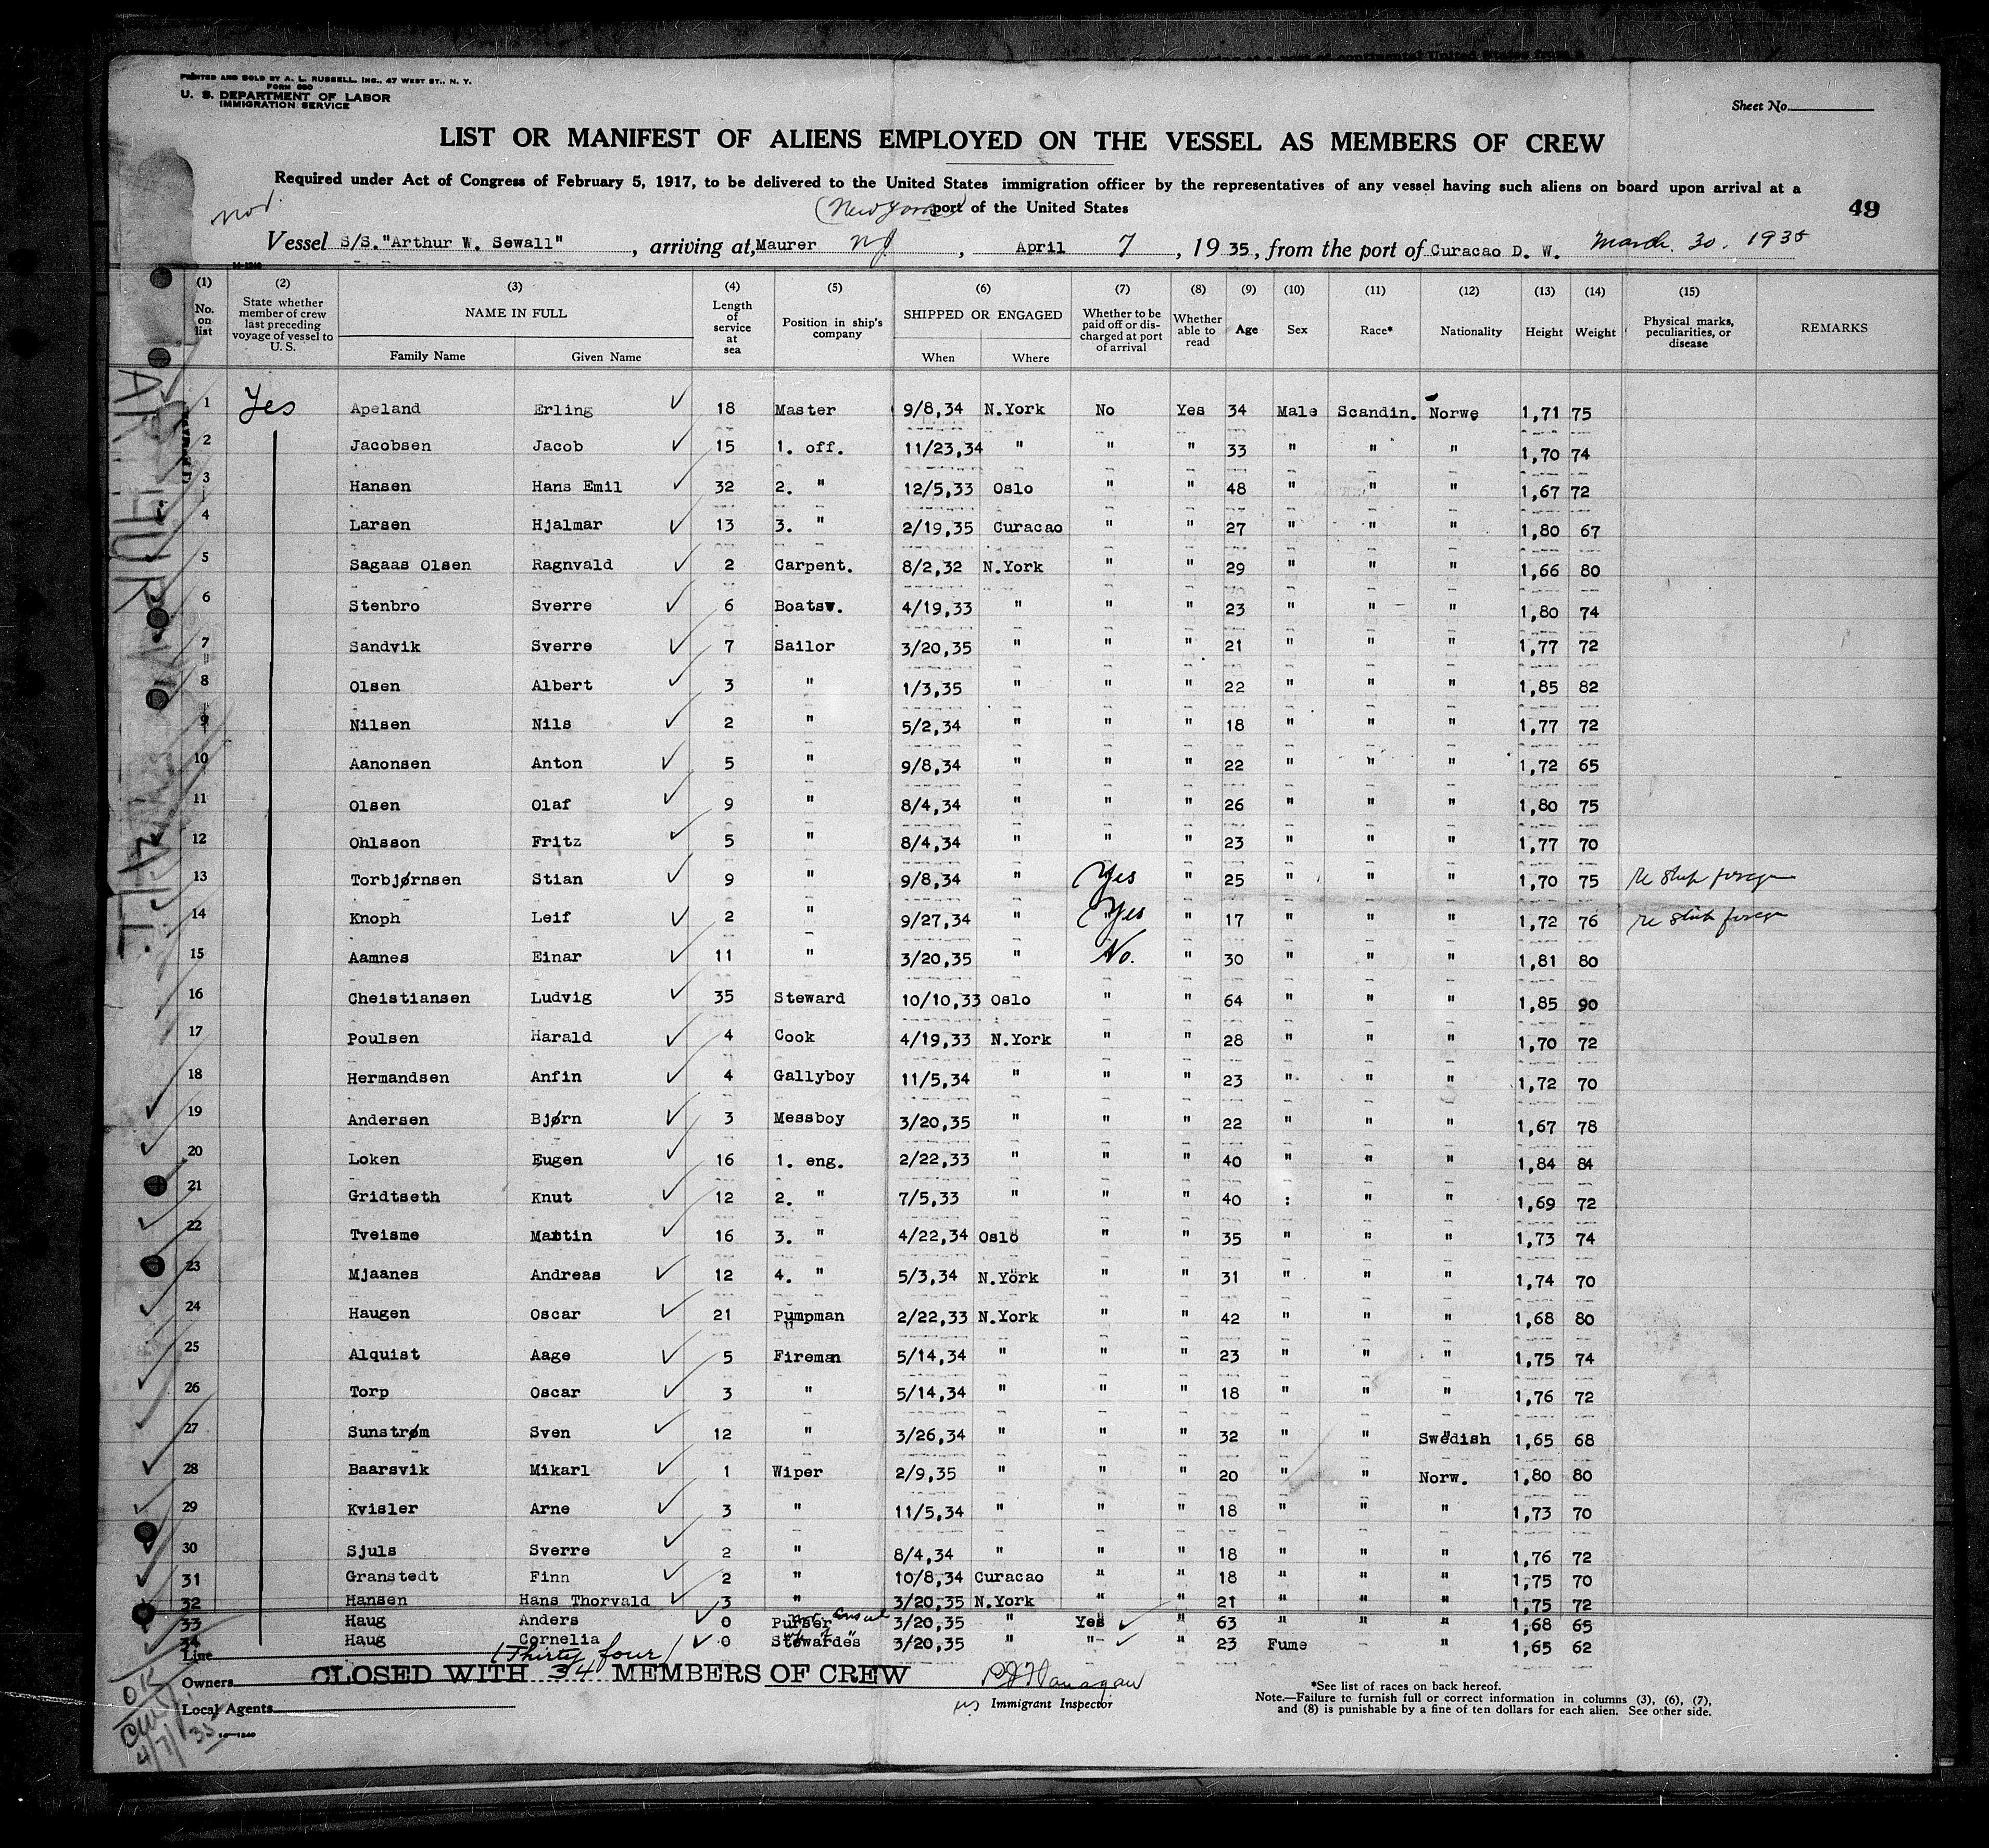 PRINTED AND SOLD BY A. L. RUSSELL, INC., 47 WEST ST., N. Y.
FORM 680
U. S. DEPARTMENT OF LABOR
IMMIGRATION SERVICE
Sheet No.
LIST OR MANIFEST OF ALIENS EMPLOYED ON THE VESSEL AS MEMBERS OF CREW
Required under Act of Congress of February 5, 1917, to be delivered to the United States immigration officer by the representatives of any vessel having such aliens on board upon arrival at a
(New York) port of the United States
49
Nor.
Vessel S/S."Arthur W. Sewall", arriving at, Maurer NJ, April 7, 1935, from the port of Curacao D. W. March. 30. 1935
14-1240
(1) (2) (3) (4) (5) (6) (7) (8) (9) (10) (11) (12) (13) (14) (15)
No. on list | State whether member of crew last preceding voyage of vessel to U. S. | NAME IN FULL | Family Name | Given Name | Length of service at sea | Position in ship's company | SHIPPED OR ENGAGED | When | Where | Whether to be paid off or discharged at port of arrival | Whether able to read | Age | Sex | Race* | Nationality | Height | Weight | Physical marks, peculiarities, or disease | REMARKS
1 Yes Apeland Erling ✓ 18 Master 9/8,34 N.York No Yes 34 Male Scandin. Norwe 1,71 75
2 Jacobsen Jacob ✓ 15 1. off. 11/23,34 " " " 33 " " " 1,70 74
3 Hansen Hans Emil ✓ 32 2. " 12/5,33 Oslo " " 48 " " " 1,67 72
4 Larsen Hjalmar ✓ 13 3. " 2/19,35 Curacao " " 27 " " " 1,80 67
5 Sagaas Olsen Ragnvald ✓ 2 Carpent. 8/2,32 N.York " " 29 " " " 1,66 80
6 Stenbro Sverre ✓ 6 Boatsw. 4/19,33 " " " 23 " " " 1,80 74
7 Sandvik Sverre ✓ 7 Sailor 3/20,35 " " " 21 " " " 1,77 72
8 Olsen Albert ✓ 3 " 1/3,35 " " " 22 " " " 1,85 82
9 Nilsen Nils ✓ 2 " 5/2,34 " " " 18 " " " 1,77 72
10 Aanonsen Anton ✓ 5 " 9/8,34 " " " 22 " " " 1,72 65
11 Olsen Olaf ✓ 9 " 8/4,34 " " " 26 " " " 1,80 75
12 Ohlsson Fritz ✓ 5 " 8/4,34 " " " 23 " " " 1,77 70
13 Torbjørnsen Stian ✓ 9 " 9/8,34 " Yes " 25 " " " 1,70 75 re ship foreign
14 Knoph Leif ✓ 2 " 9/27,34 " Yes " 17 " " " 1,72 76 re ship foreign
15 Aamnes Einar ✓ 11 " 3/20,35 " No. " 30 " " " 1,81 80
16 Cheistiansen Ludvig ✓ 35 Steward 10/10,33 Oslo " " 64 " " " 1,85 90
17 Poulsen Harald ✓ 4 Cook 4/19,33 N.York " " 28 " " " 1,70 72
18 Hermandsen Anfin ✓ 4 Gallyboy 11/5,34 " " " 23 " " " 1,72 70
19 Andersen Bjørn ✓ 3 Messboy 3/20,35 " " " 22 " " " 1,67 78
20 Loken Eugen ✓ 16 1. eng. 2/22,33 " " " 40 " " " 1,84 84
21 Gridtseth Knut ✓ 12 2. " 7/5,33 " " " 40 : " " 1,69 72
22 Tveisme Martin ✓ 16 3. " 4/22,34 Oslo " " 35 " " " 1,73 74
23 Mjaanes Andreas ✓ 12 4. " 5/3,34 N.York " " 31 " " " 1,74 70
24 Haugen Oscar ✓ 21 Pumpman 2/22,33 N.York " " 42 " " " 1,68 80
25 Alquist Aage ✓ 5 Fireman 5/14,34 " " " 23 " " " 1,75 74
26 Torp Oscar ✓ 3 " 5/14,34 " " " 18 " " " 1,76 72
27 Sunstrøm Sven ✓ 12 " 3/26,34 " " " 32 " " Swedish 1,65 68
28 Baarsvik Mikarl ✓ 1 Wiper 2/9,35 " " " 20 " " Norw. 1,80 80
29 Kvisler Arne ✓ 3 " 11/5,34 " " " 18 " " " 1,73 70
30 Sjuls Sverre ✓ 2 " 8/4,34 " " " 18 " " " 1,76 72
31 Granstedt Finn ✓ 2 " 10/8,34 Curacao " " 18 " " " 1,75 70
32 Hansen Hans Thorvald ✓ 3 " 3/20,35 N.York " " 21 " " " 1,75 72
33 Haug Anders ✓ 0 Purser 3/20,35 " Yes ✓ " 63 " " " 1,68 65
34 Haug Cornelia ✓ 0 Stewardes 3/20,35 " " ✓ " 23 Fume " 1,65 62
Line
(Thirty four)
Owners
CLOSED WITH 34 MEMBERS OF CREW
Local Agents
Immigrant Inspector
14-1240
*See list of races on back hereof.
Note.—Failure to furnish full or correct information in columns (3), (6), (7),
and (8) is punishable by a fine of ten dollars for each alien. See other side.
ARTHUR W. SEWALL.
OK
4/7/35